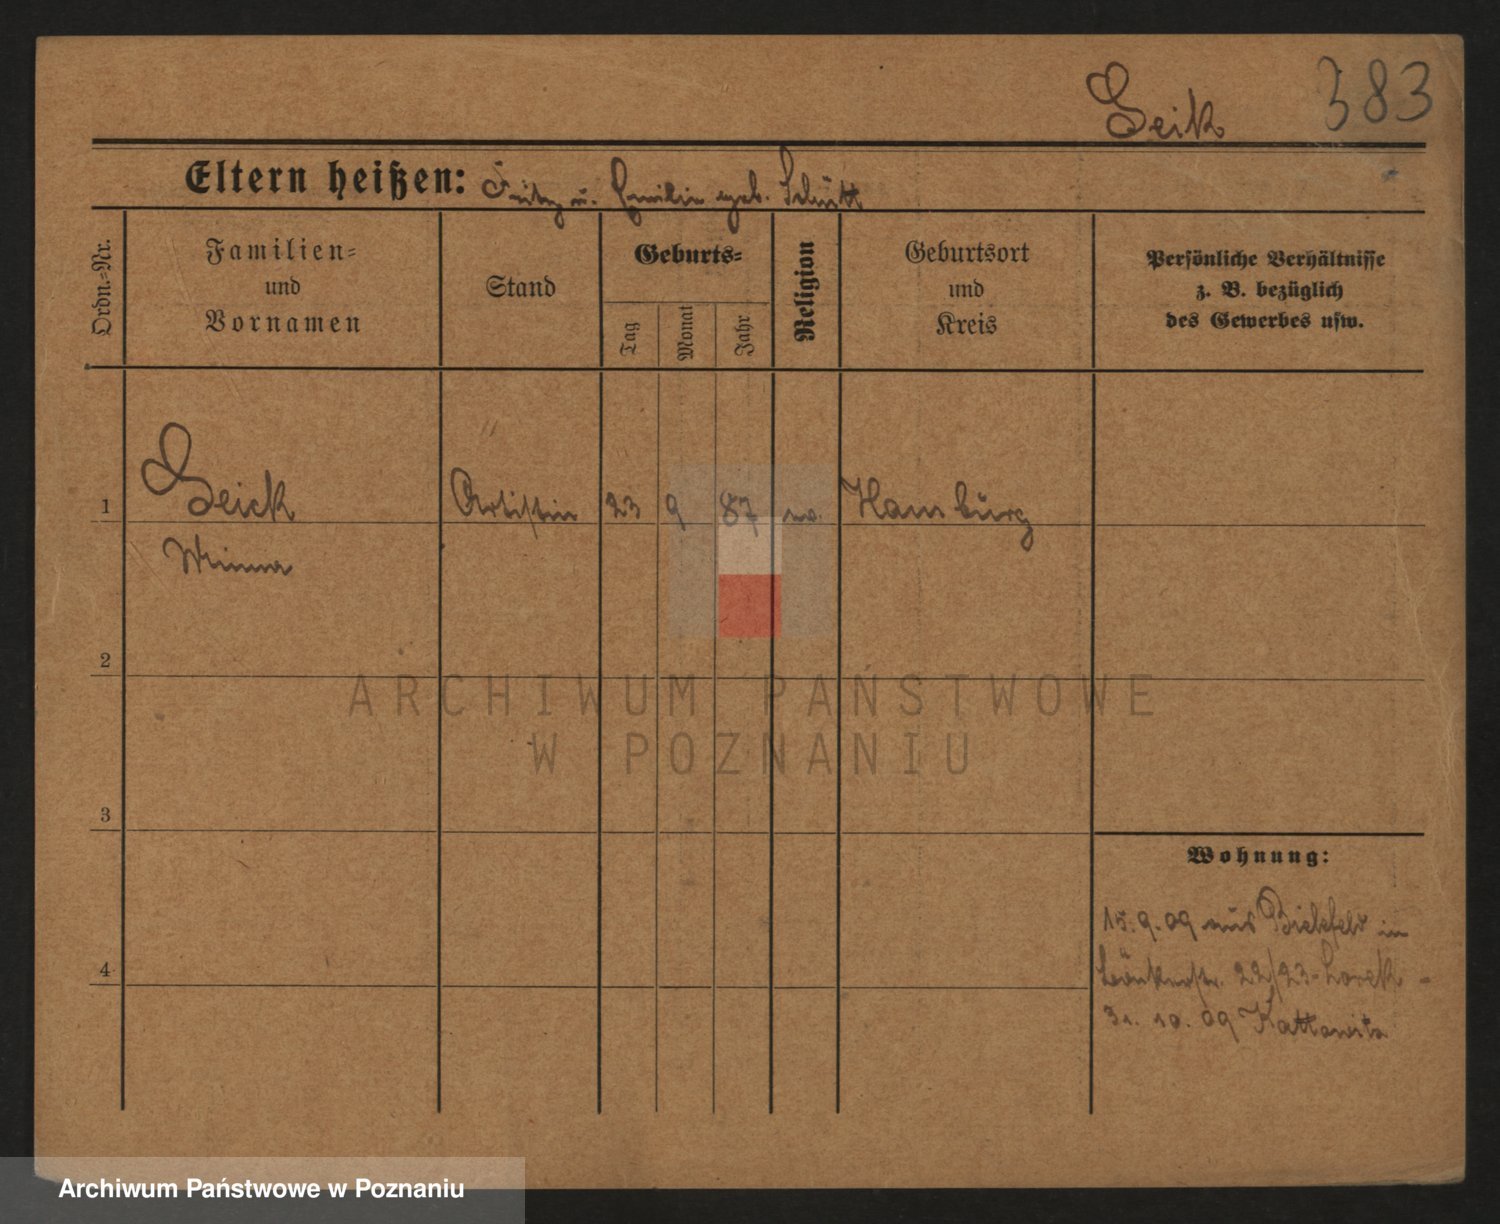 Seik 383
Eltern heißen: Fritz u. Emilie geb. Schütt
Ordn.-Nr.
Familien-
und
Vornamen
Stand
Geburts-
Tag
Monat
Jahr
Religion
Geburtsort
und
Kreis
Persönliche Verhältnisse
z. B. bezüglich
des Gewerbes usw.
1 Seick Artistin 23 9 87 Hamburg
Minna
2
ARCHIWUM PAŃSTWOWE
W POZNANIU
3
Wohnung:
15.9.09 aus Bielefeld in
22/23-
4
31. 10. 09 Kattowitz
Archiwum Państwowe w Poznaniu